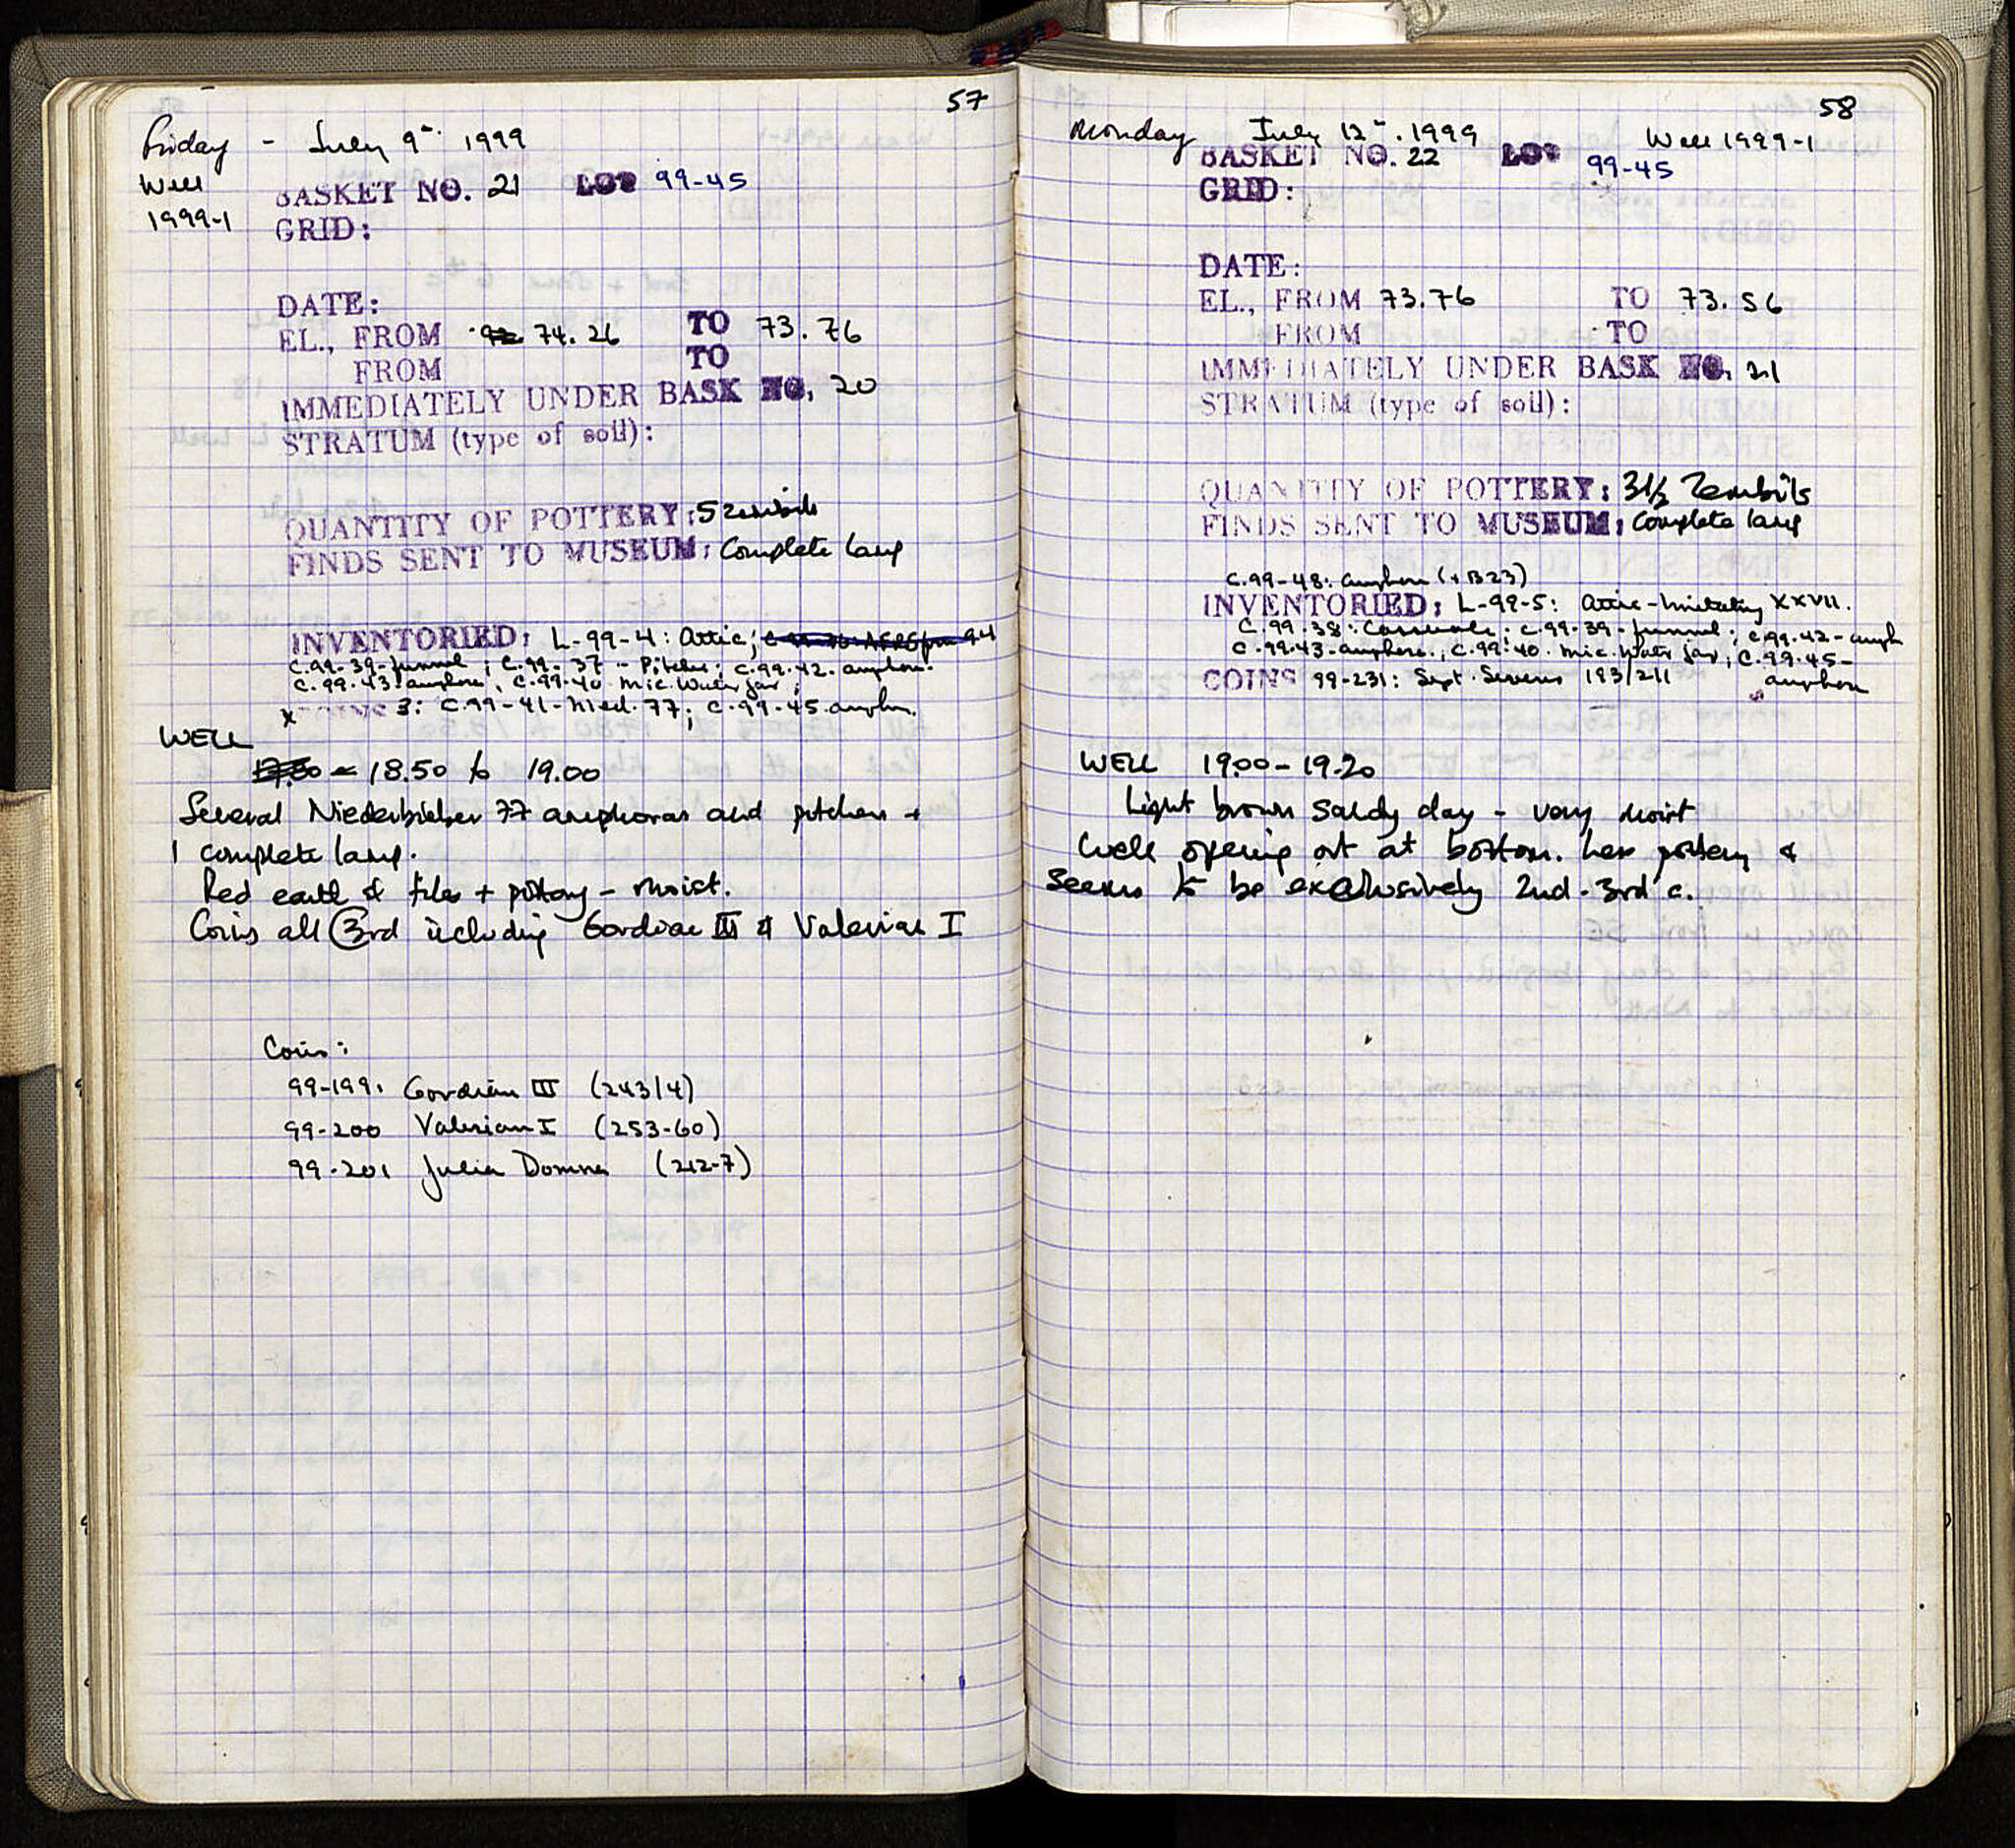 57
Friday - July 9th. 1999
Well
1999-1
BASKET NO. 21 LOT 99-45
GRID:
DATE:
EL., FROM 74.26 TO 73.76
FROM TO
IMMEDIATELY UNDER BASK NO. 20
STRATUM (type of soil):
QUANTITY OF POTTERY: 5 zembils
FINDS SENT TO MUSEUM: Complete lamp
INVENTORIED: L-99-4: Attic;
C.99-39-funnel; C.99-37-Pitcher; C.99-42. amphora.
C.99.43. amphora, C.99-40 Mic. Water jar;
x COINS 3: C.99-41-Nied. 77; C.99-45 amphora.
WELL
18.50 to 19.00
Several Niederbieber 77 amphoras and pitchers +
1 complete lamp.
Red earth & tiles + pottery - moist.
Coins all 3rd including Gordian III & Valerian I
Coins:
99-199. Gordian III (243/4)
99-200 Valerian I (253-60)
99-201 Julia Domna (212-7)
58
Monday July 12th. 1999 Well 1999-1
BASKET NO. 22 LOT 99-45
GRID:
DATE:
EL., FROM 73.76 TO 73.56
FROM TO
IMMEDIATELY UNDER BASK NO. 21
STRATUM (type of soil):
QUANTITY OF POTTERY: 3 1/2 Zembils
FINDS SENT TO MUSEUM: Complete lamp
C.99-48: amphora (+B23)
INVENTORIED: L-99-5: Attic-Imitating XXVII.
C.99.38: Casserole; C.99-39-funnel; C.99-42-amph
C.99.43-amphora., C.99.40. Mic. Water jar; C.99.45-
amphora
COINS 99-231: Sept. Severus 193/211
WELL 19.00-19.20
Light brown sandy clay - very moist
Well opening out at bottom. Less pottery &
seems to be exclusively 2nd-3rd c.